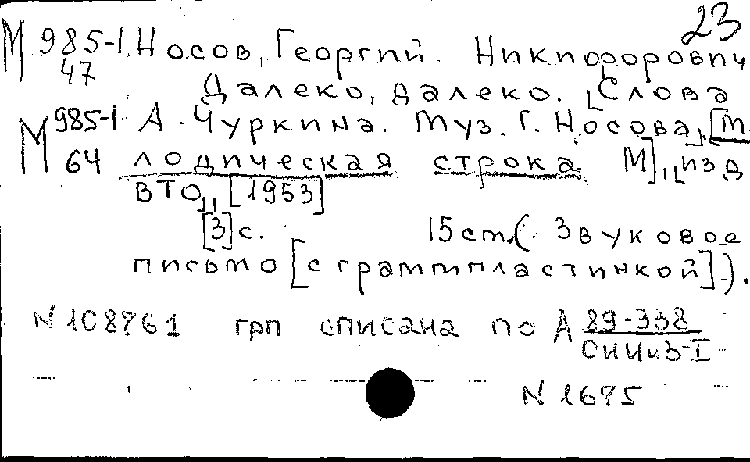 23
М 985-1 Носов, Георгий Никифорович
47
Далеко, далеко. [Слова
М 985-1 А. Чуркина. Муз. Г. Носова], [М.
64 лодическая строка М], [изд
ВТО], [1953]
[3] с. 15 cm. (Звуковое
письмо [с граммпластинкой]).
N 108761 грп списана по А 89-338
N 1675